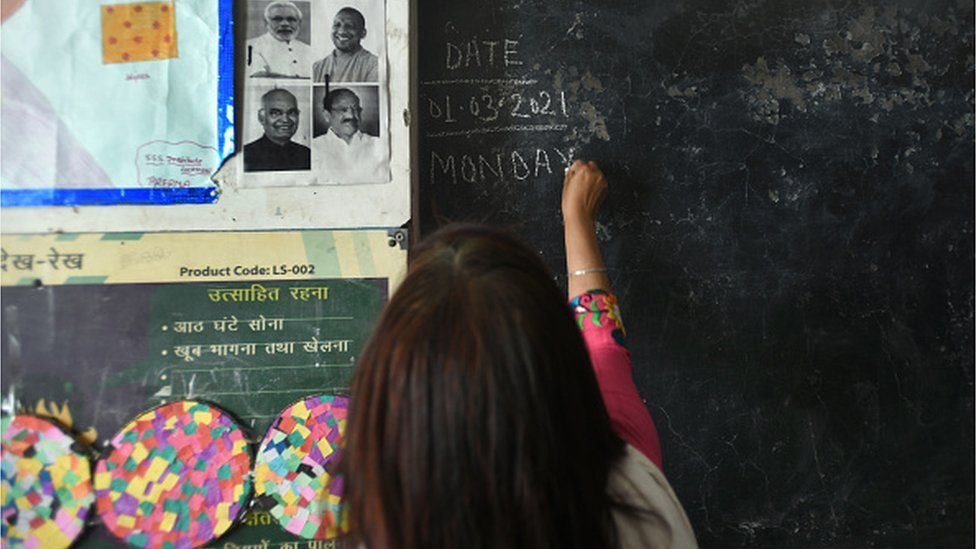 DATE
01·03·2021
MONDAY
PRERNA
देख-रेख
Product Code: LS-002
उत्साहित रहना
• आठ घंटे सोना
• खूब भागना तथा खेलना
का पालन